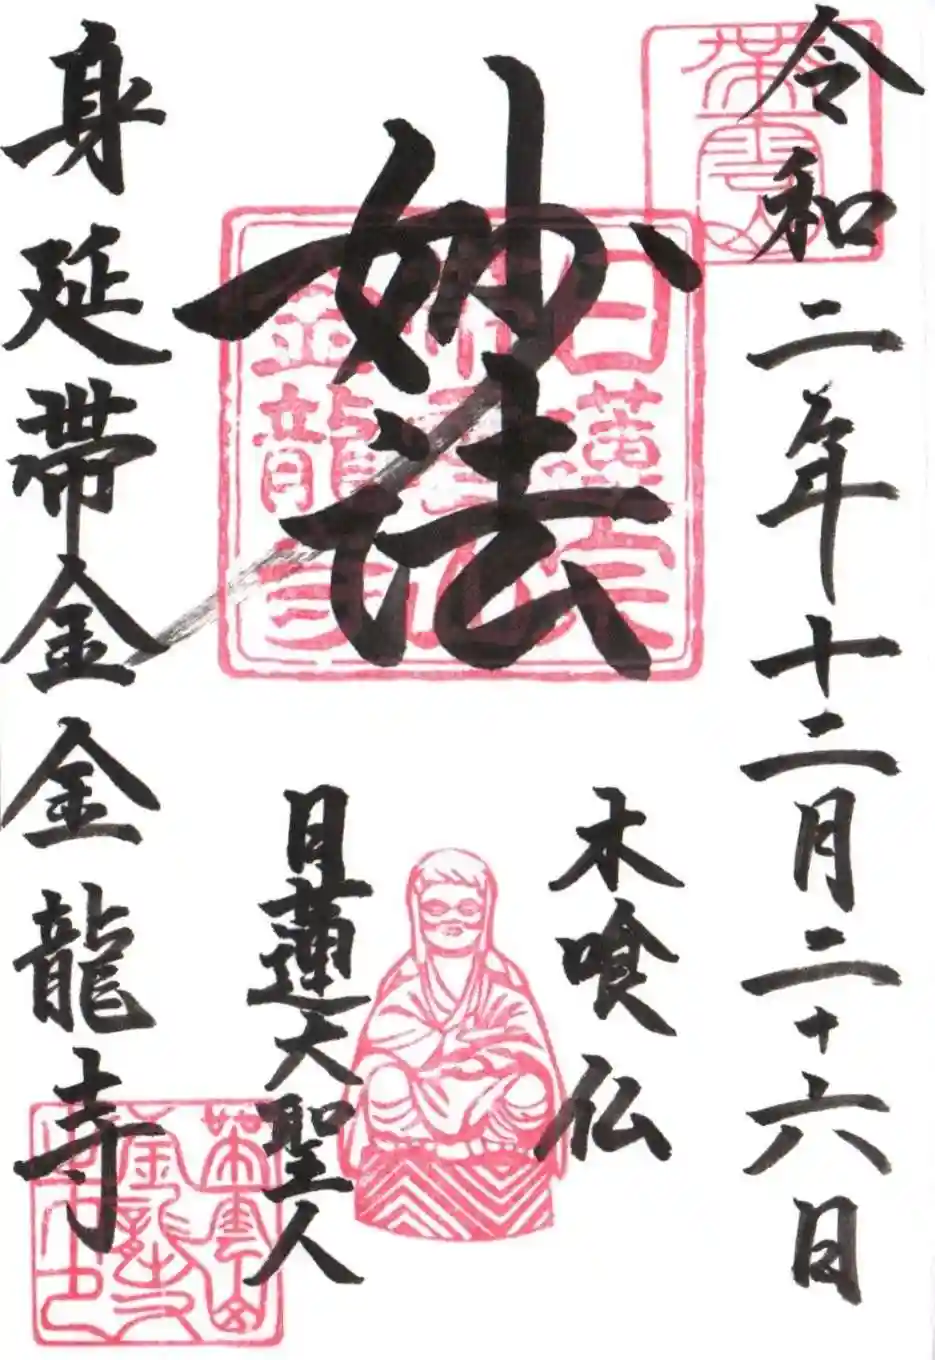 令和二年十二月二十六日
妙法
日蓮宗
金龍寺
木喰仏
日蓮大聖人
身延帯金金龍寺